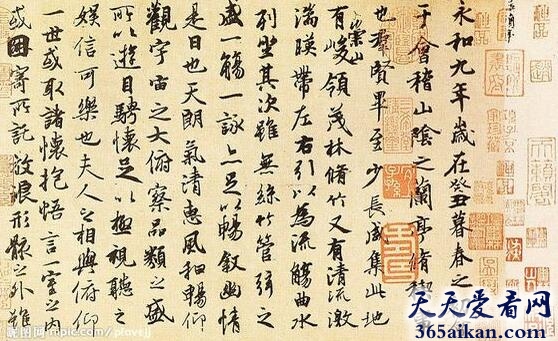 永和九年歲在癸丑暮春之
于會稽山陰之蘭亭脩禊
也羣賢畢至少長咸集此地
有崇山峻領茂林脩竹又有清流激
湍暎帶左右引以為流觴曲水
列坐其次雖無絲竹管弦之
盛一觴一詠亦足以暢敘幽情
是日也天朗氣清惠風和暢仰
觀宇宙之大俯察品類之盛
所以遊目騁懷足以極視聽之
娛信可樂也夫人之相與俯仰
一世或取諸懷抱悟言一室之內
或因寄所託放浪形骸之外雖
昵图网 nipic.com/plovejj
天天爱看网
365aikan.com